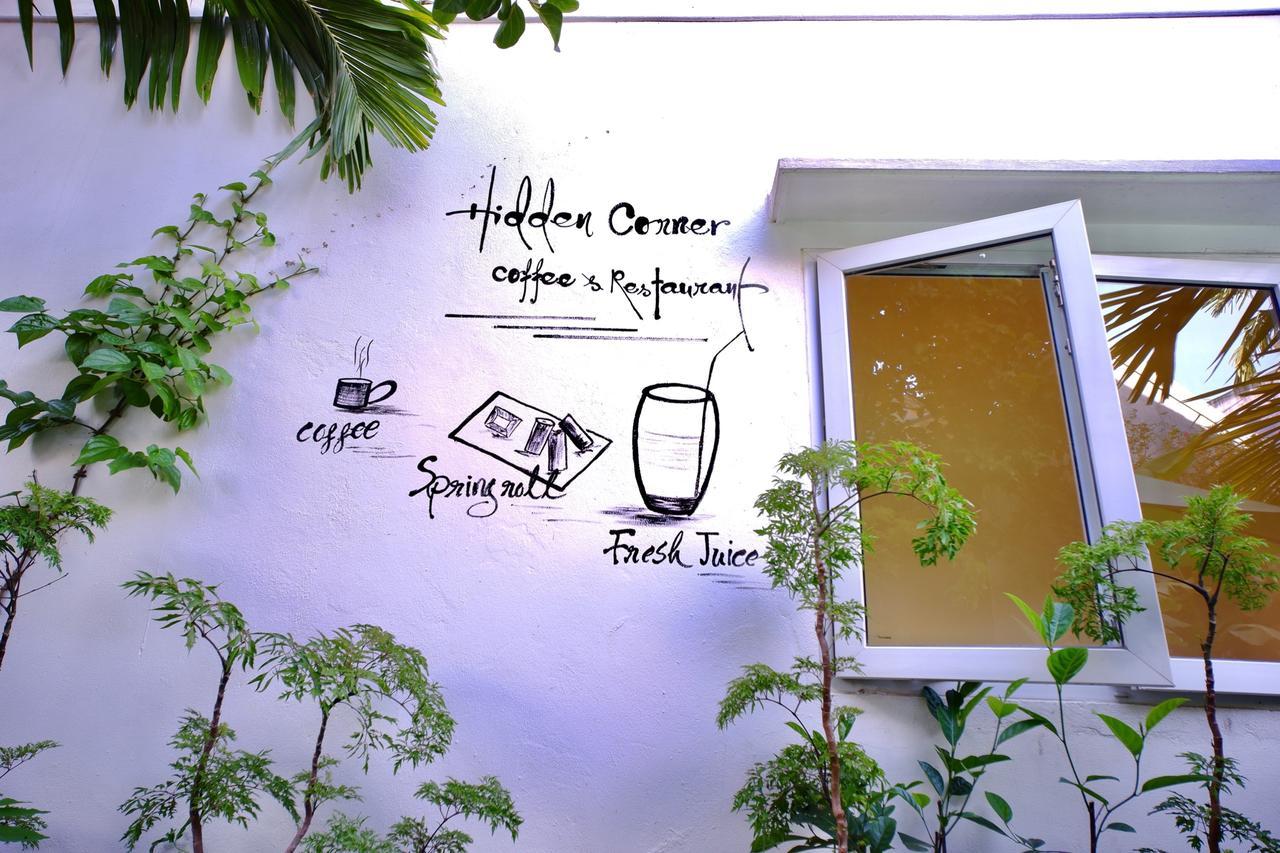 Hidden Corner
coffee & Restaurant
coffee
Spring roll
Fresh Juice